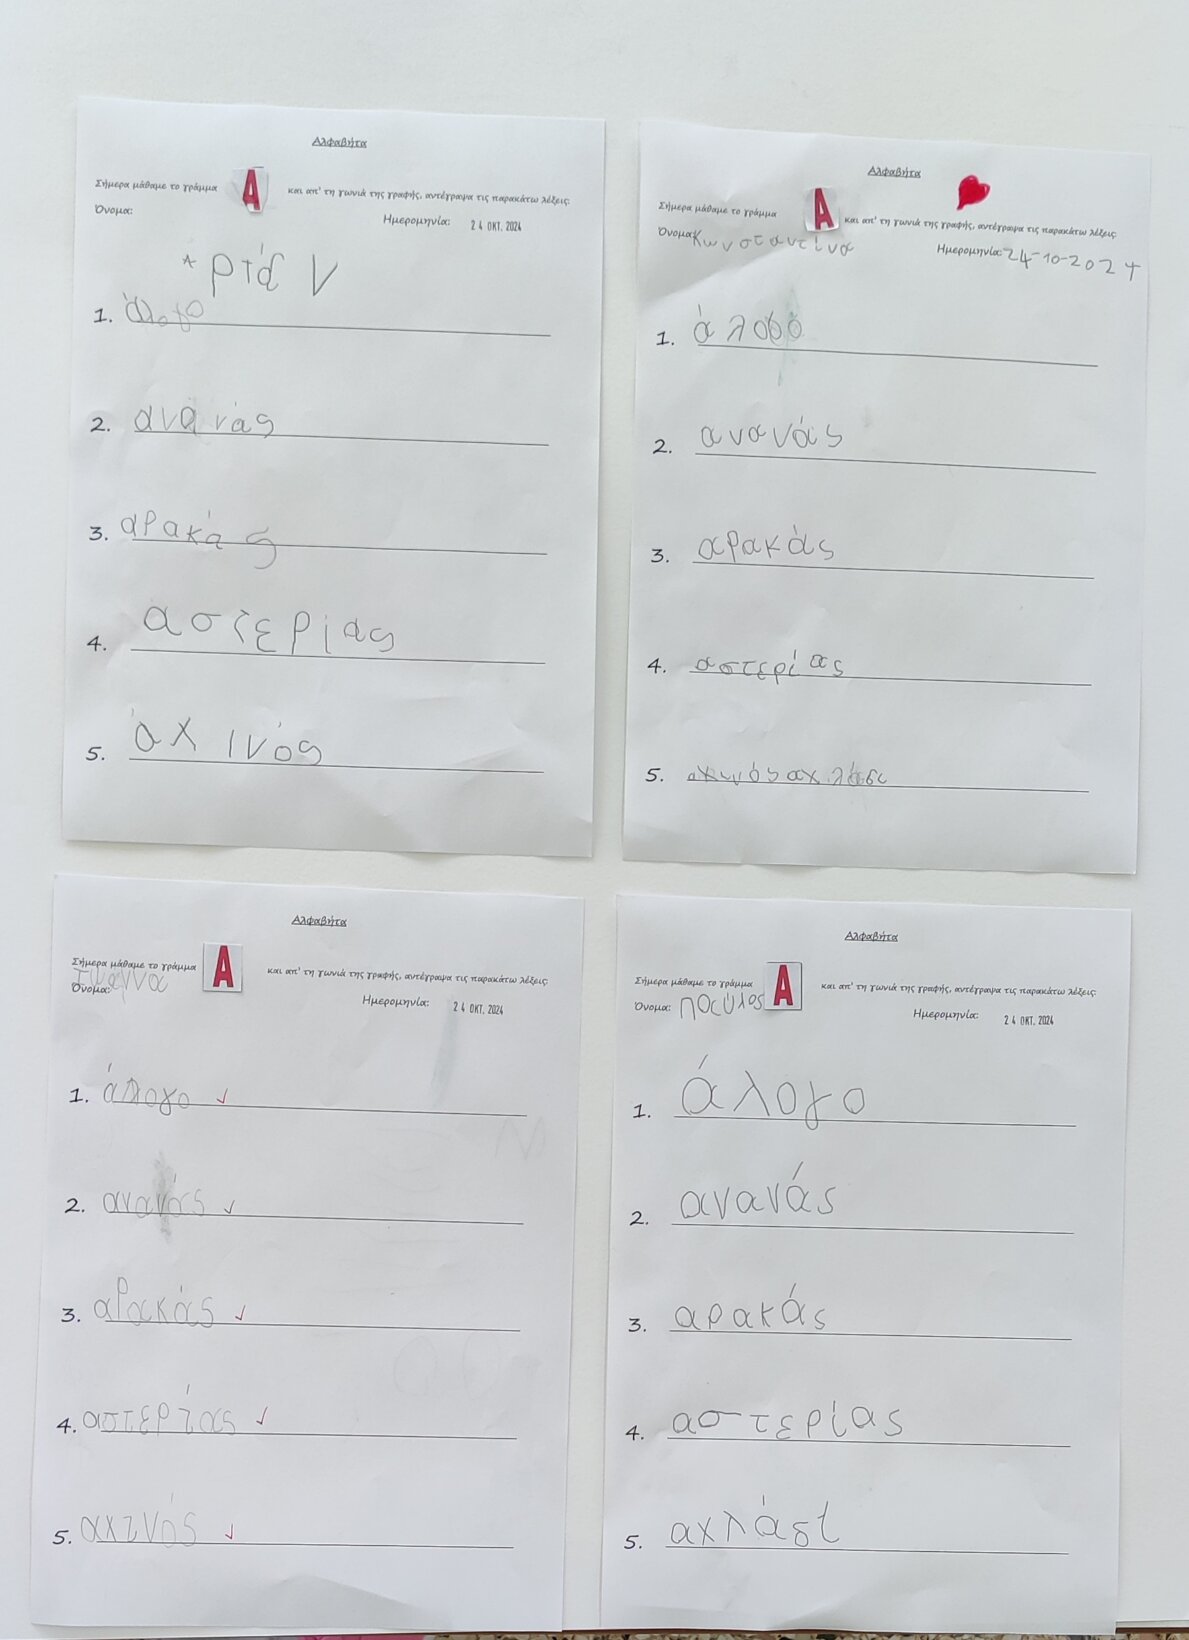 Αλφαβήτα
Σήμερα μάθαμε το γράμμα A και απ' τη γωνιά της γραφής, αντέγραψα τις παρακάτω λέξεις:
Όνομα: Ημερομηνία: 24 ΟΚΤ. 2024
1. άλογο
2. ανανάς
3. αρακάς
4. αστερίας
5. αχινός
Αλφαβήτα
Σήμερα μάθαμε το γράμμα A και απ' τη γωνιά της γραφής, αντέγραψα τις παρακάτω λέξεις:
Όνομα: Κωνσταντίνα Ημερομηνία: 24-10-2024
1. άλογο
2. ανανάς
3. αρακάς
4. αστερίας
5. αχινός
Αλφαβήτα
Σήμερα μάθαμε το γράμμα A και απ' τη γωνιά της γραφής, αντέγραψα τις παρακάτω λέξεις:
Όνομα:
Ημερομηνία: 24 ΟΚΤ. 2024
1. άλογο
2. ανανάς
3. αρακάς
4. αστερίας
5. αχινός
Αλφαβήτα
Σήμερα μάθαμε το γράμμα A και απ' τη γωνιά της γραφής, αντέγραψα τις παρακάτω λέξεις:
Όνομα: Παύλος Ημερομηνία: 24 ΟΚΤ. 2024
1. άλογο
2. ανανάς
3. αρακάς
4. αστερίας
5. αχλάδι